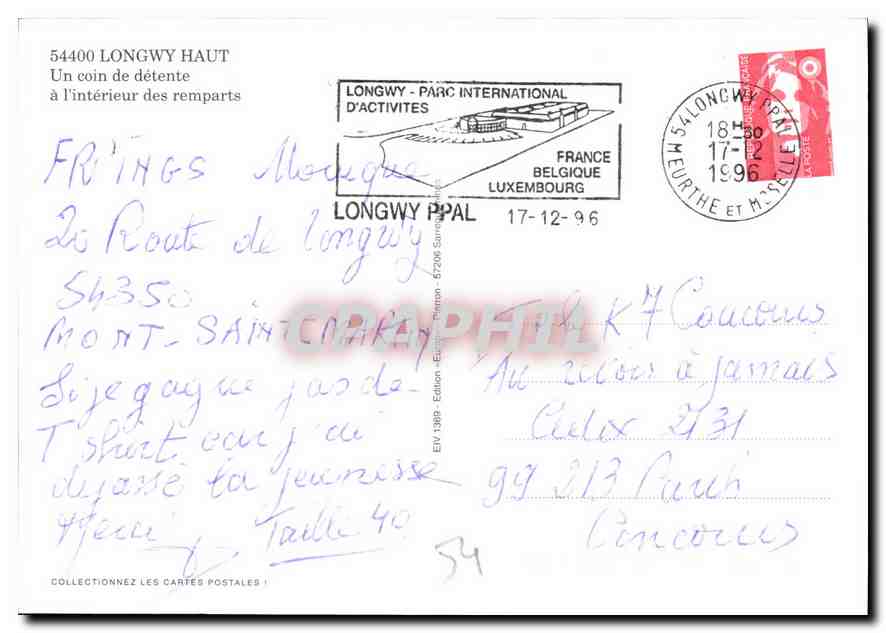 54400 LONGWY HAUT
Un coin de détente
à l'intérieur des remparts
LONGWY - PARC INTERNATIONAL
D'ACTIVITES
FRANCE
BELGIQUE
LUXEMBOURG
LONGWY PPAL 17-12-96
54 LONGWY PPAL
18H30
17-12
1996
MEURTHE ET MOSELLE
REPUBLIQUE FRANÇAISE
LA POSTE
FRINGS Monique
20 Route de Longwy
54350
MONT-SAINT-MARTIN
Si je gagne pas de
T shirt car j'ai
dépassé la jeunesse
Merci Taille 40
EIV 1369 - Edition «Europ» Pierron - 57206 Sarreguemines
CPAPHIL
K7 Concours
Au revoir à jamais
Cedex 2131
99213 Paris
Concours
54
COLLECTIONNEZ LES CARTES POSTALES !